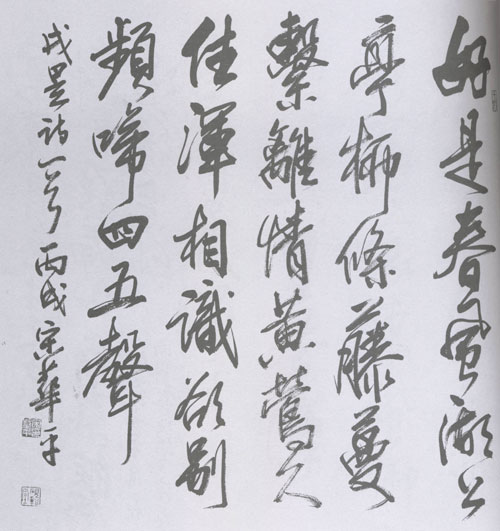 好是春風湖上
亭柳條藤蔓
繫離情黄鶯久
住渾相識欲別
頻啼四五聲
戎昱詩一首丙戌宋華平